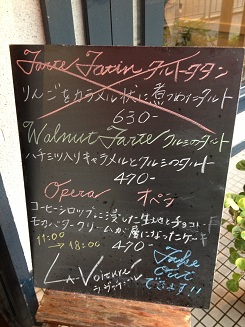 Tarte Tatin タルトタタン
りんごをカラメル状に煮つめたタルト
630-
Walnut Tarte クルミのタルト
ハチミツ入りキャラメルとクルミのタルト
470-
Opera オペラ
コーヒーシロップに浸した生地とチョコ
モカバタークリームが層になったケーキ
11:00
→18:00 470-
LA VOITURE
ラヴァチュール
Take
out
できます!!